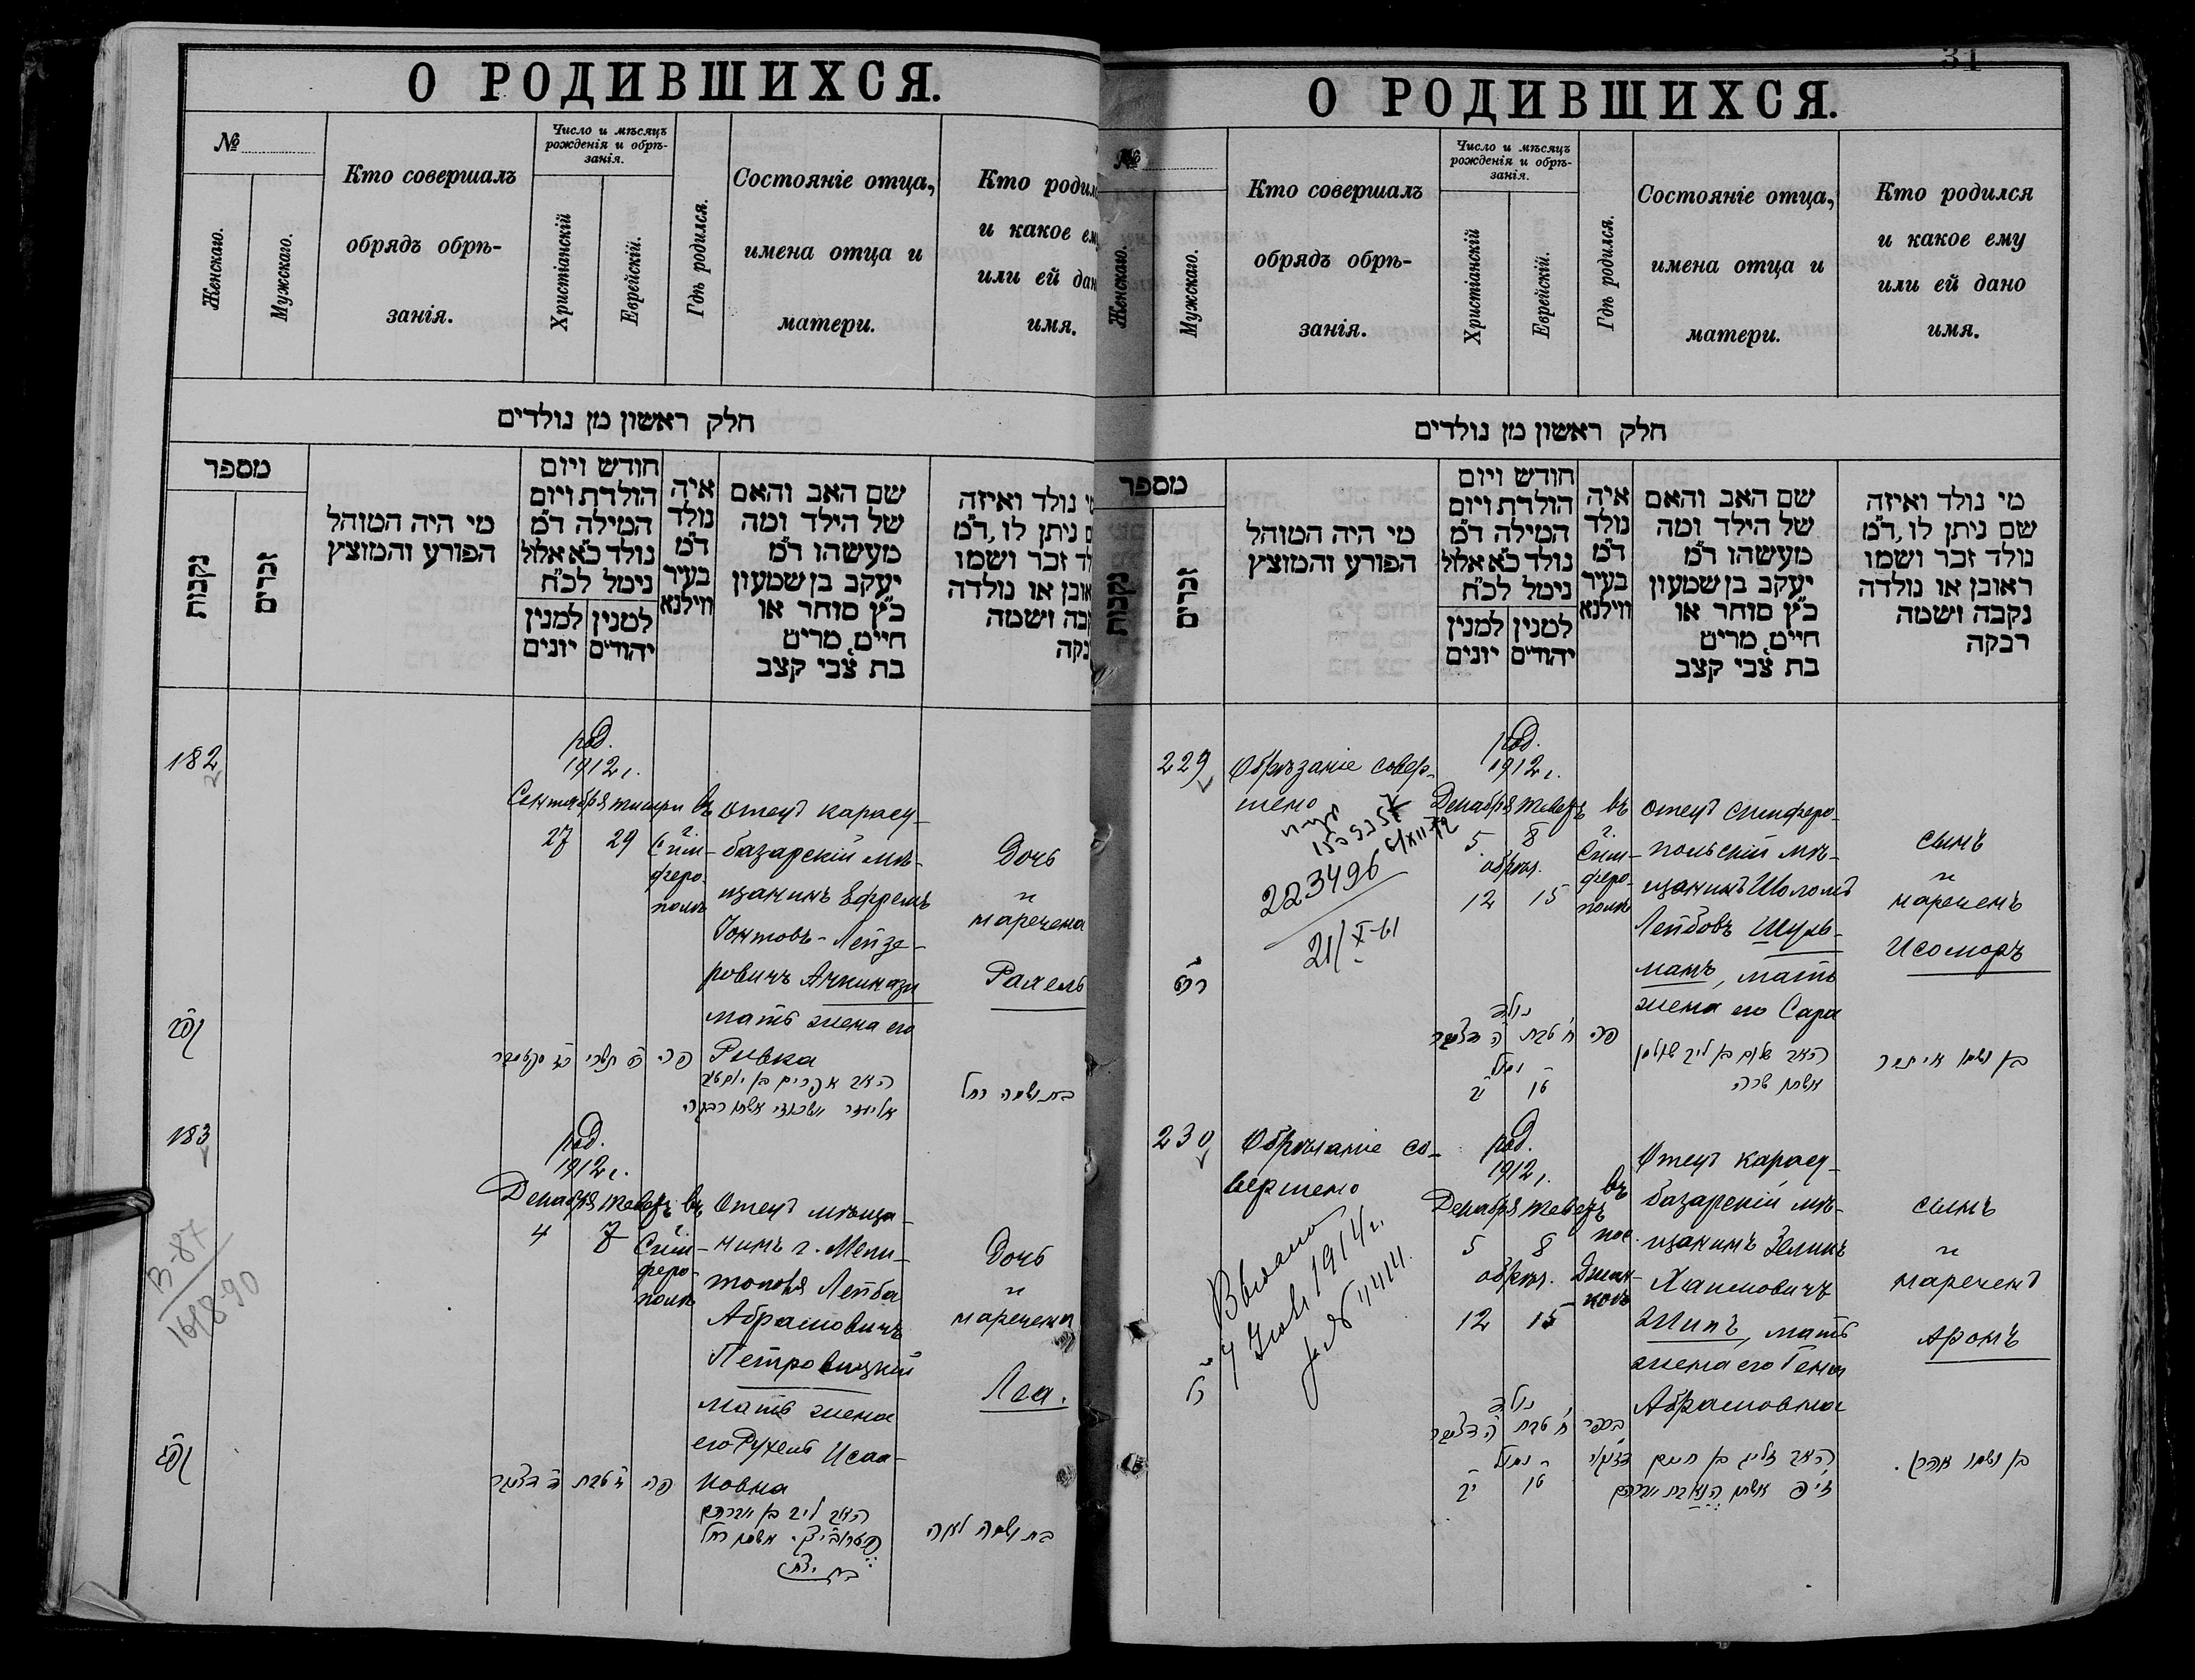 О РОДИВШИХСЯ.
№
Женскаго.
Мужскаго.
Кто совершалъ
обрядъ обрѣ-
занія.
Число и мѣсяцъ
рожденія и обрѣ-
занія.
Христіанскій
Еврейскій.
Гдѣ родился.
Состояніе отца,
имена отца и
матери.
Кто родил
и какое ем
или ей дан
имя.
חלק ראשון מן נולדים
מספר
נקבות
זכרים
מי היה המוהל
הפורע והמוצץ
חודש ויום
הולדת ויום
המילה ד״מ
נולד כ״א אלול
נימל לכ״ח
למנין למנין
יהודים יונים
איה
נולד
ד״מ
בעיר
ווילנא
שם האב והאם
של הילד ומה
מעשהו ד״מ
יעקב בן שמעון
כ״ץ סוחר או
חיים, מרים
בת צבי קצב
י נולד ואיזה
ם ניתן לו, ד״מ
לד זכר ושמו
אובן או נולדה
בה ושמה
בקה
182
род.
1912 г.
Сентября тишри въ
27 29 г. Сим-
феро-
полѣ
Отецъ карасу-
базарскій мѣ-
щанинъ Ефремъ
Іомтовъ-Лейзе-
ровичъ Ачкинази
мать жена его
Ривка
Дочь
и
наречена
Рахель
בת ושמה רחל
183
род.
1912 г.
Декабря теверъ въ
4 7 г. Сим-
феро-
полѣ
Отецъ мѣща-
нинъ г. Мели-
тополя Лейба
Абрамовичъ
Петровицкій
мать жена
его Рухель Исаа-
ковна
Дочь
и
наречена
Леа.
בת ושמה לאה
В-87
16/8-90
31
О РОДИВШИХСЯ.
№
Женскаго.
Мужскаго.
Кто совершалъ
обрядъ обрѣ-
занія.
Число и мѣсяцъ
рожденія и обрѣ-
занія.
Христіанскій
Еврейскій.
Гдѣ родился.
Состояніе отца,
имена отца и
матери.
Кто родился
и какое ему
или ей дано
имя.
חלק ראשון מן נולדים
מספר
נקבות
זכרים
מי היה המוהל
הפורע והמוצץ
חודש ויום
הולדת ויום
המילה ד״מ
נולד כ״א אלול
נימל לכ״ח
למנין למנין
יהודים יונים
איה
נולד
ד״מ
בעיר
ווילנא
שם האב והאם
של הילד ומה
מעשהו ד״מ
יעקב בן שמעון
כ״ץ סוחר או
חיים, מרים
בת צבי קצב
מי נולד ואיזה
שם ניתן לו, ד״מ
נולד זכר ושמו
ראובן או נולדה
נקבה ושמה
רבקה
229
Обрѣзаніе совер-
шено
223496
21/X-61
род.
1912 г.
Декабря теверъ въ
5 8 г. Сим-
обрѣз. феро-
12 15 полѣ
Отецъ симферо-
польскій мѣ-
щанинъ Шоломъ
Лейбовъ Шуль-
манъ, мать
жена его Сара
сынъ
и
нареченъ
Исоморъ
האב שלום בן ליב שולמן
אשתו שרה
בן ושמו איתמר
230
Обрѣзаніе со-
вершено
род.
1912 г.
Декабря теверъ въ
5 8 пос.
обрѣз. Джан-
12 15 кой
Отецъ карасу-
базарскій мѣ-
щанинъ Зеликъ
Хаимовичъ
Зипъ, мать
жена его Геня
Абрамовна
сынъ
и
нареченъ
Аронъ
האב זליג בן חיים
בן ושמו אהרן.